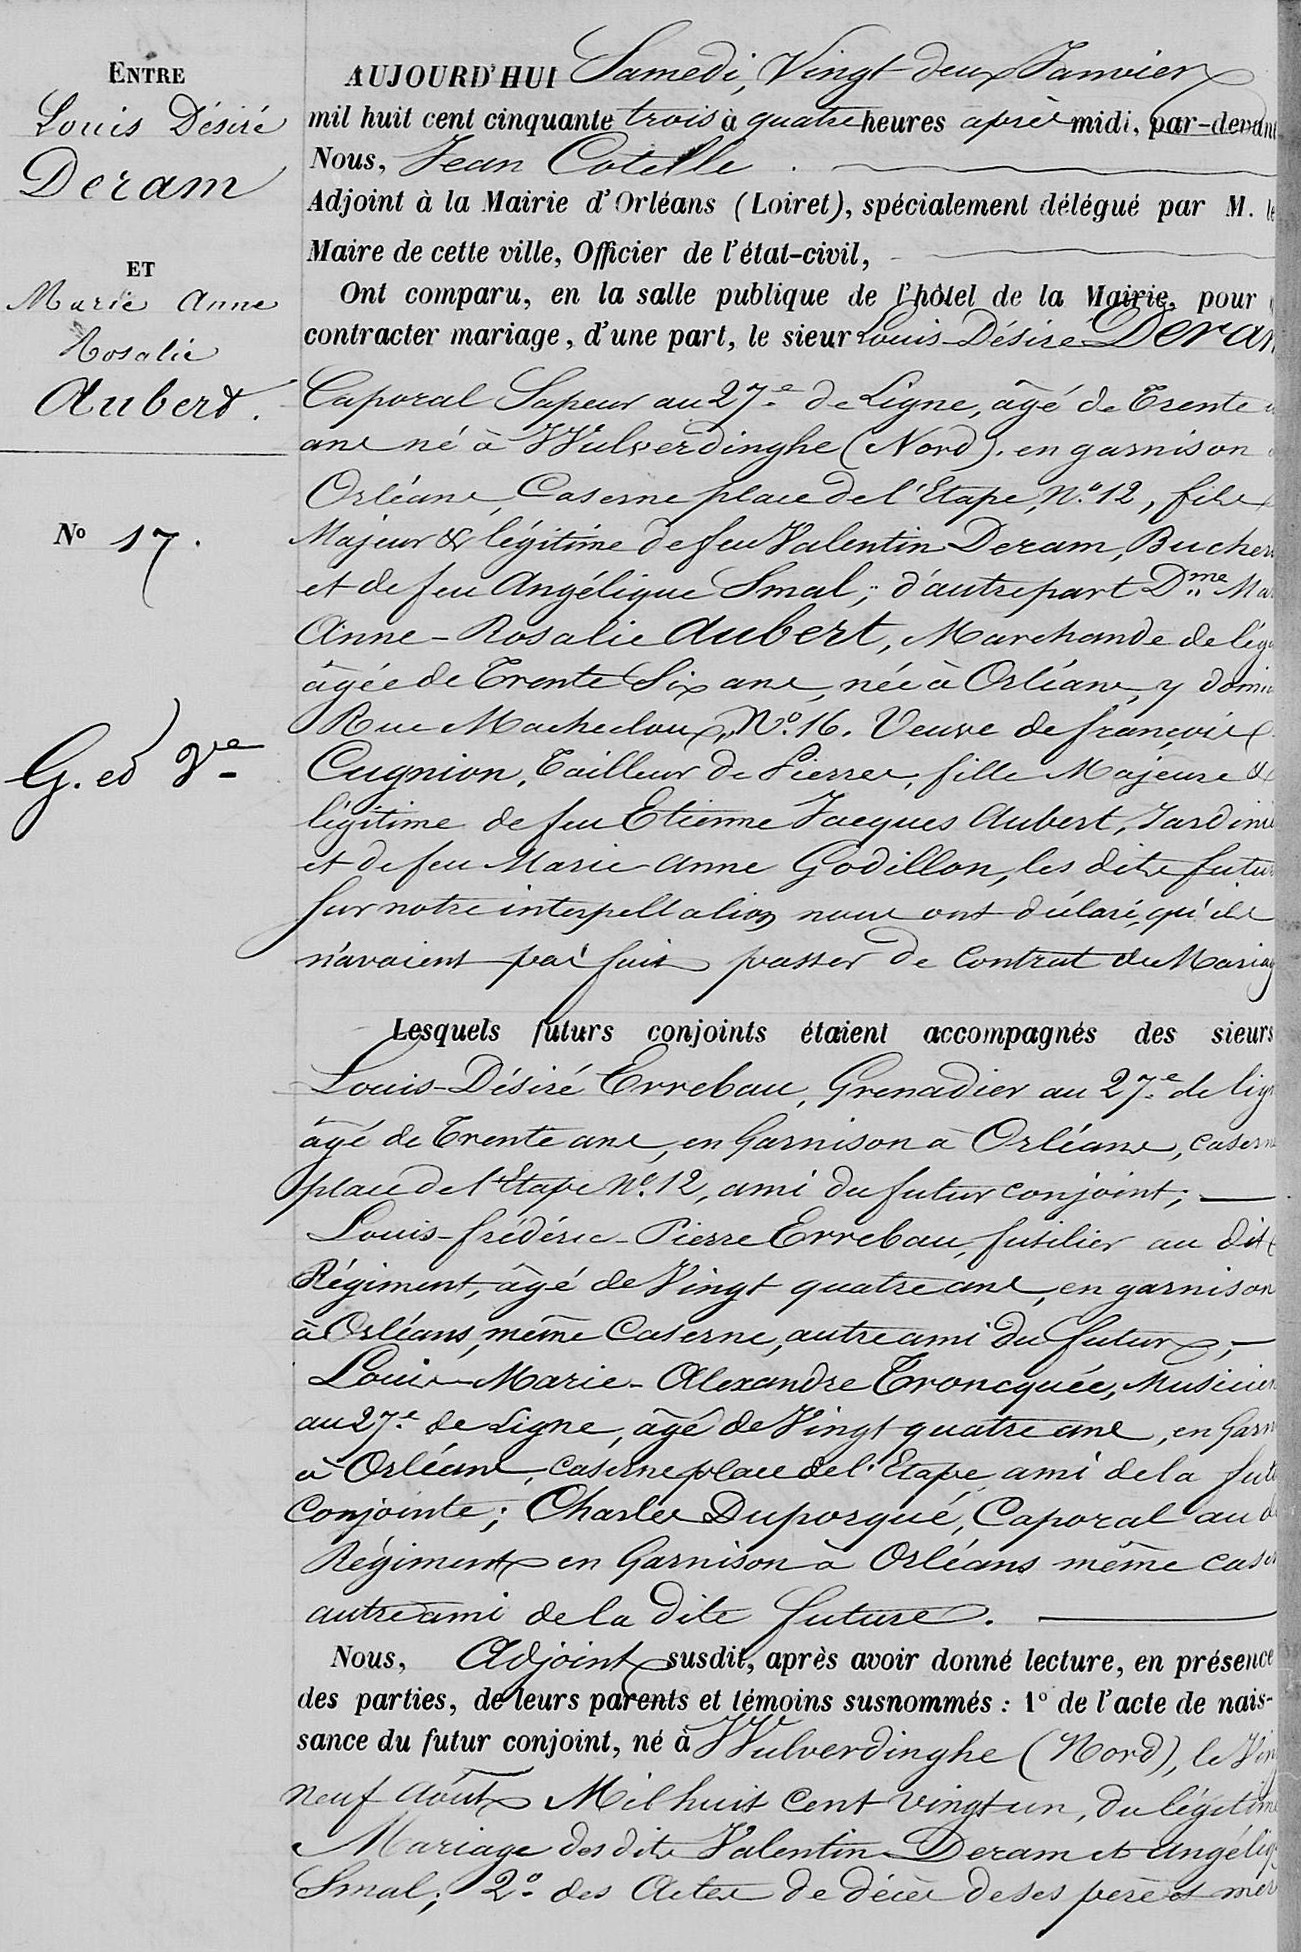 ENTRE
Louis Désiré
Deram
ET
Marie Anne
Rosalie
Aubert.
No 17.
G. et Ve
AUJOURD'HUI Samedi, Vingt deux Janvier
mil huit cent cinquante trois à quatre heures après midi, par-devant
Nous, Jean Cotelle
Adjoint à la Mairie d'Orléans (Loiret), spécialement délégué par M. le
Maire de cette ville, Officier de l'état-civil,
Ont comparu, en la salle publique de l'hôtel de la Mairie, pour
contracter mariage, d'une part, le sieur Louis-Désiré Deram
Caporal Sapeur au 27e de Ligne, âgé de Trente
ans né à Wulverdinghe (Nord). en garnison
Orléans, Caserne place de l'Etape, No. 12, fils
Majeur & légitime de feu Valentin Deram, Bucher
et de feu Angélique Smal; d'autre part Dme Ma
Anne-Rosalie Aubert, Marchande de lég
âgée de Trente Six ans, née à Orléans, y domi
Rue Macheclou, No. 16. Veuve de françois
Cugnion, Tailleur de Pierres, fille Majeure &
légitime de feu Etienne Jacques Aubert, Jardini
et de feu Marie Anne Godillon, les dits futur
sur notre interpellation nous ont déclaré, qu'ils
n'avaient pas fait passer de Contrat de Mariag
Lesquels futurs conjoints étaient accompagnés des sieurs
Louis-Désiré Errebau, Grenadier au 27e de lign
âgé de Trente ans, en Garnison à Orléans, casern
place de l'Etape No. 12, ami du futur conjoint;
Louis-frédéric-Pierre Errebau, fusilier au dit
Régiment, âgé de Vingt quatre ans, en garnison
à Orléans, même Caserne, autre ami du futur;
Louis-Marie-Alexandre Troncquée, Musicien
au 27e de Ligne, âgé de Vingt quatre ans, en Garn
à Orléans, caserne place de l'Etape ami de la fut
Conjointe; Charles Duporgué, Caporal au d
Régiment en Garnison à Orléans même caser
autre ami de la dite future.
Nous, Adjoint susdit, après avoir donné lecture, en présence
des parties, de leurs parents et témoins susnommés : 1o de l'acte de nais-
sance du futur conjoint, né à Wulverdinghe (Nord), le Vin
neuf Août Mil huit Cent vingt un, du légitime
Mariage des dits Valentin Deram et Angéliq
Smal; 2o. des Actes de décès de ses père et mèr